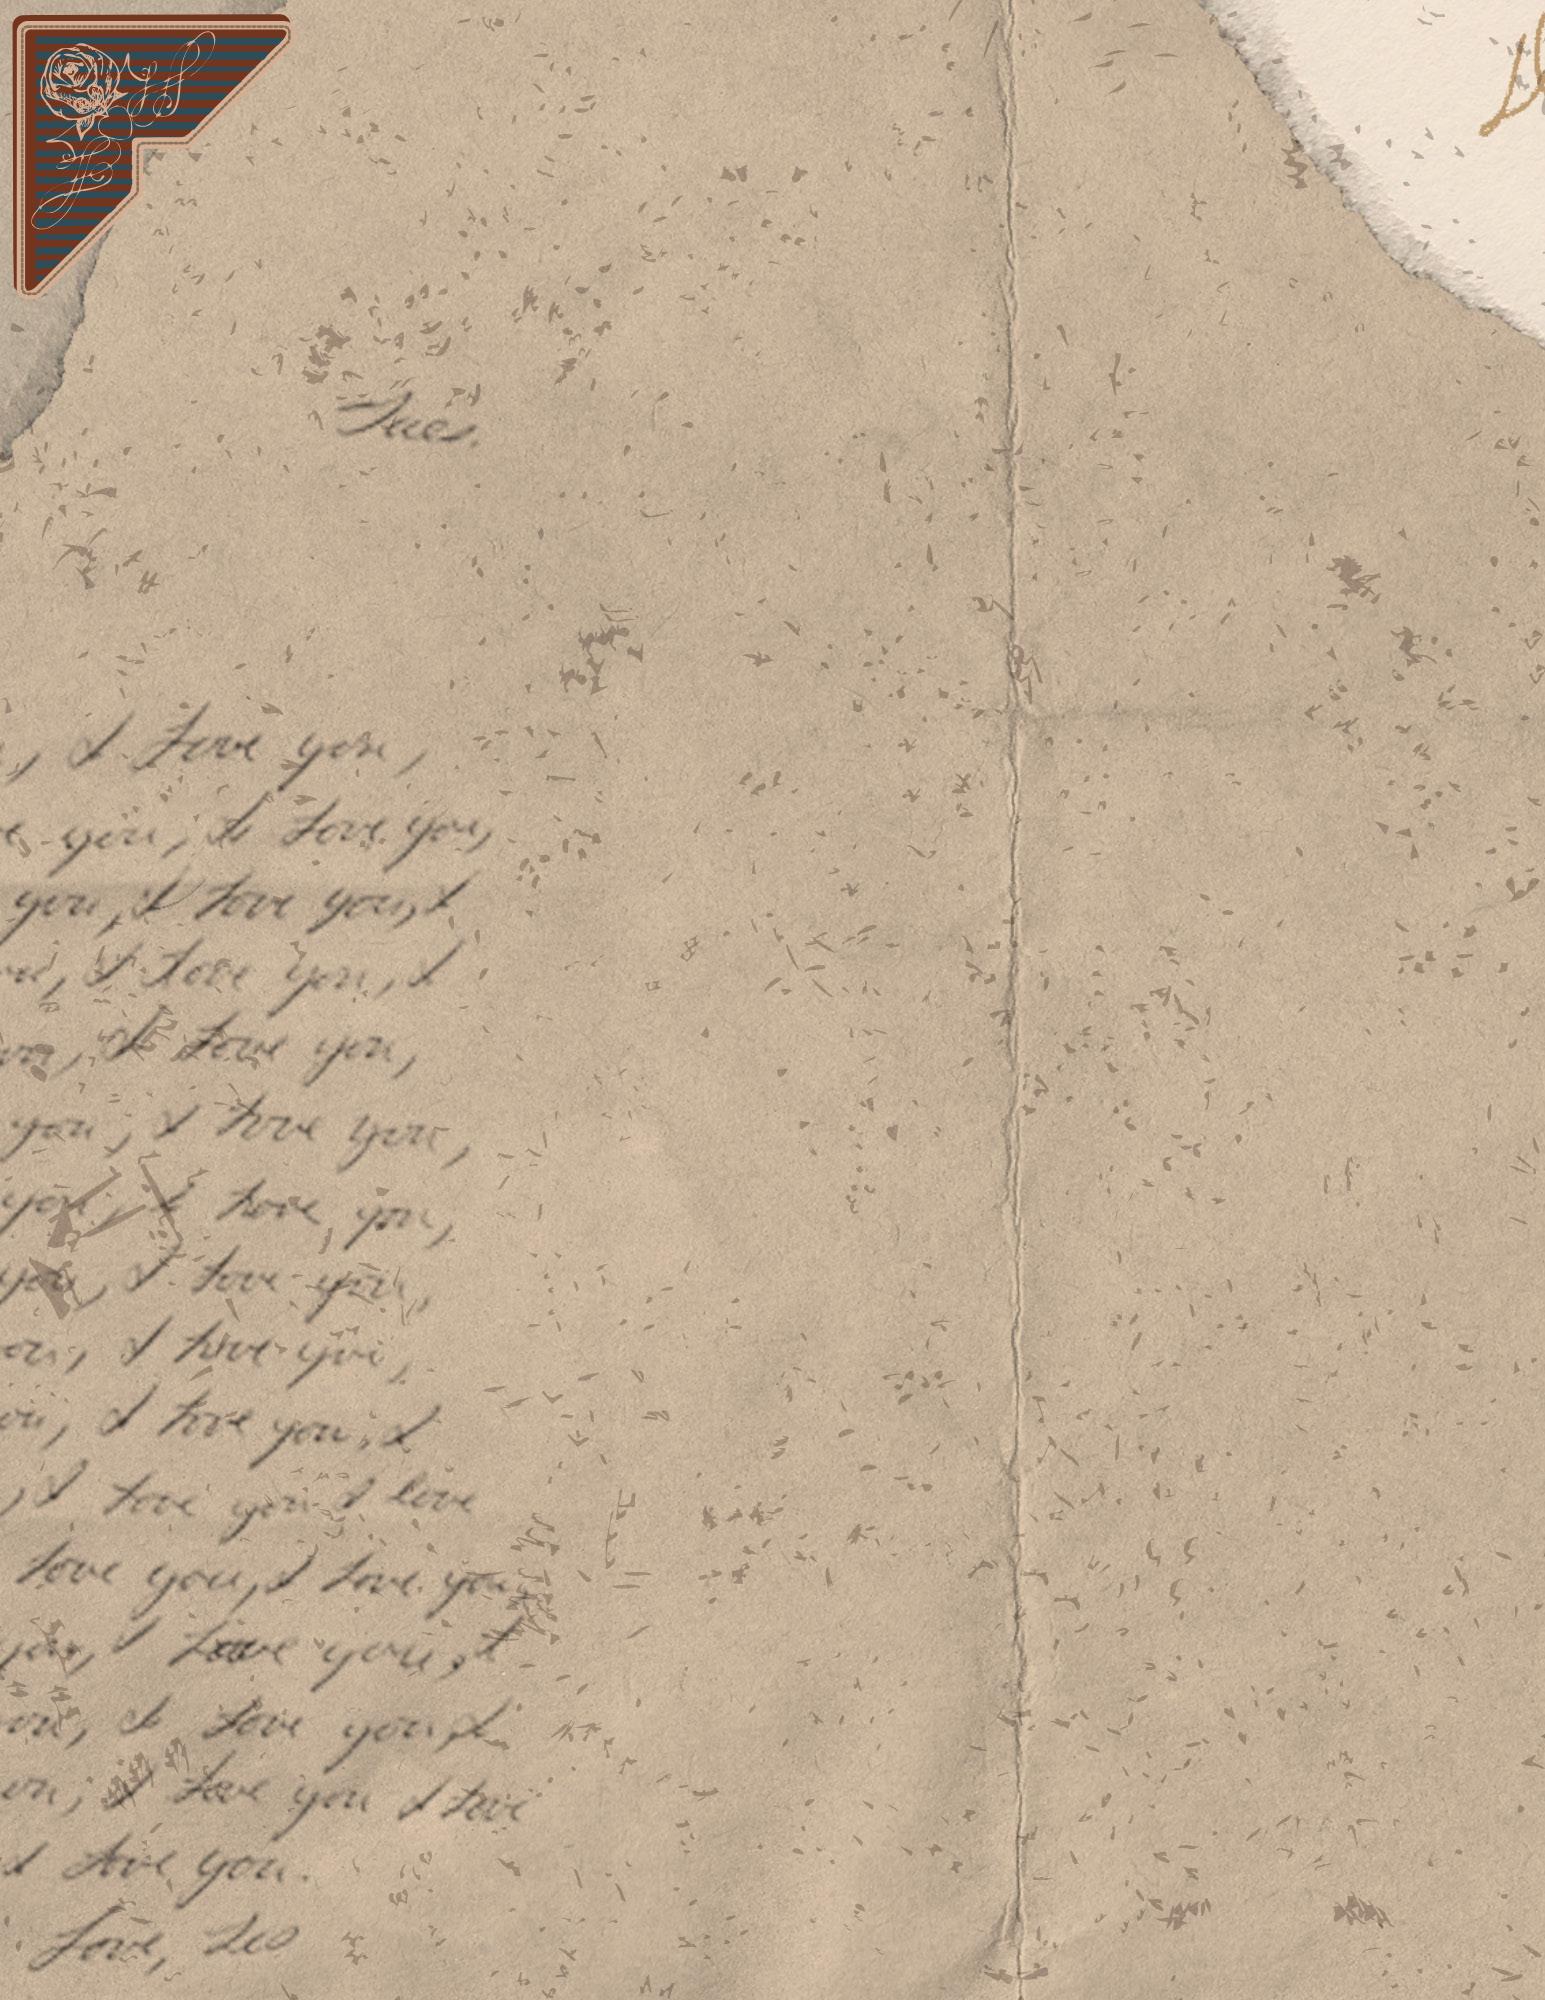 Tues.
, I love you,
you, I love you,
you, I love you, I
, I love you, I
, I love you,
you, I love you,
you, I love you,
you, I love you,
, I love you,
, I love you, I
, I love you I love
love you, I love you
you, I love you, I
, I love you, I
, I love you I love
love you.
Love, Leo